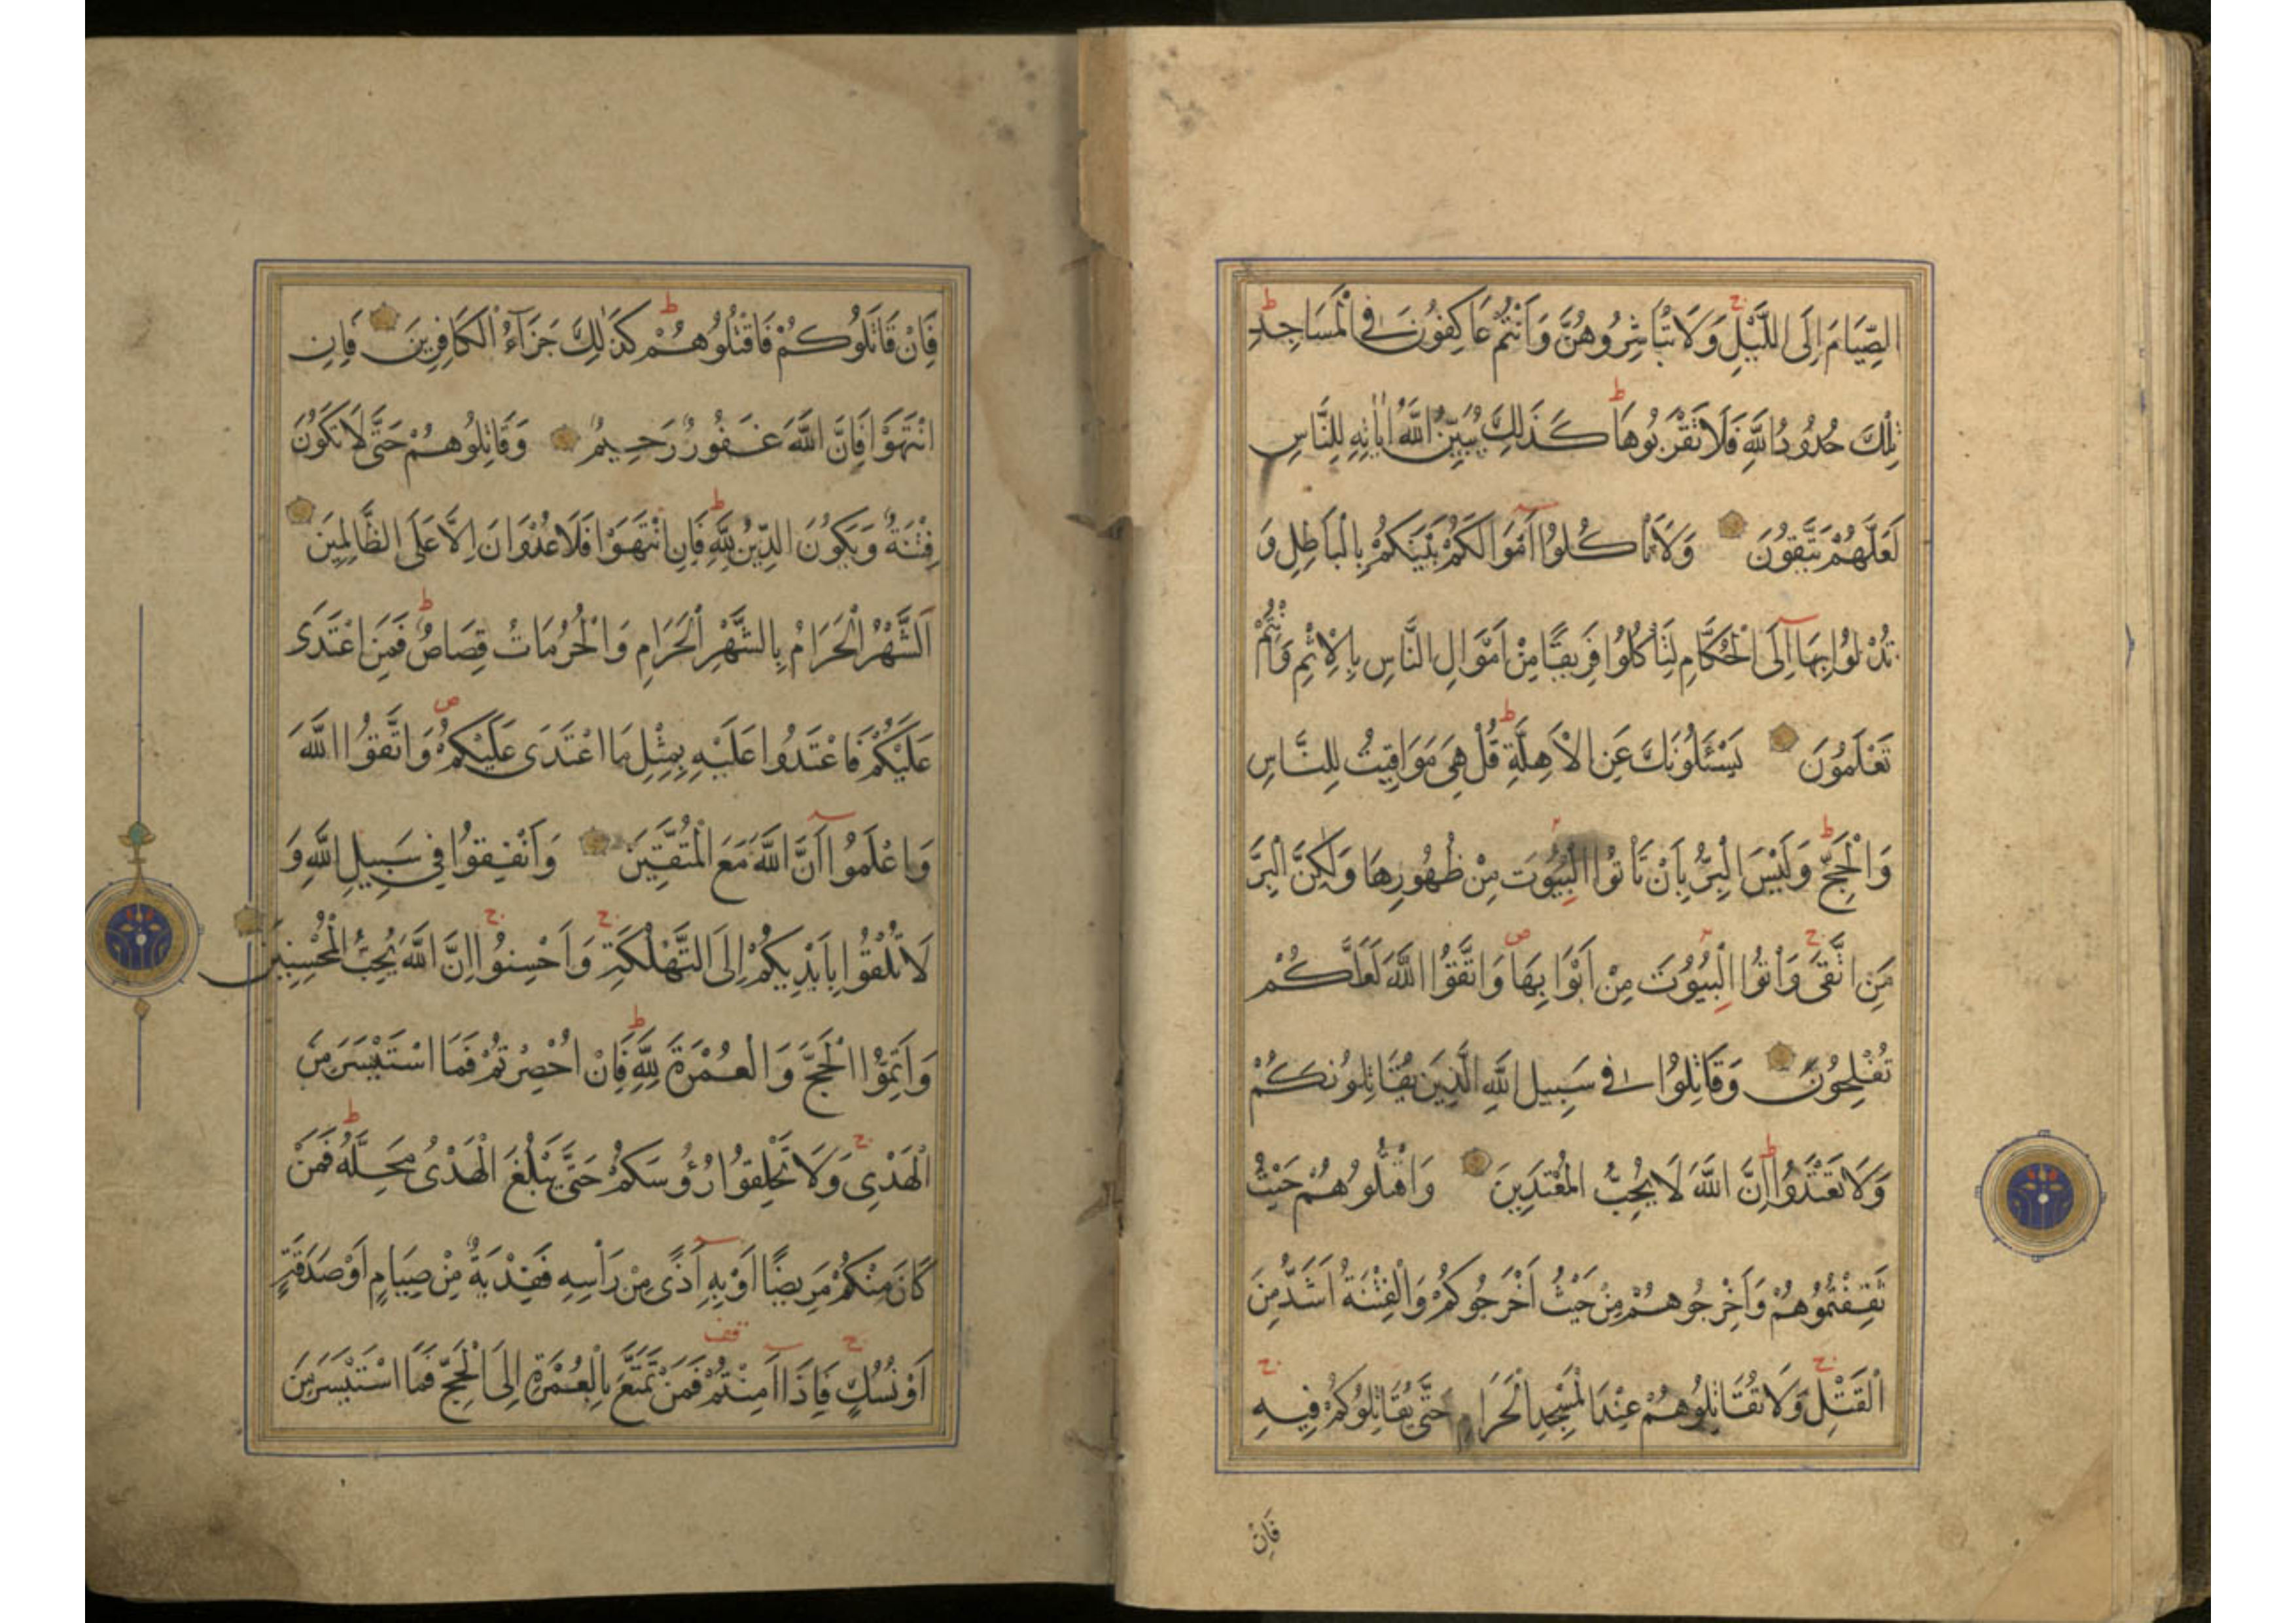 الصِّيَامَ اِلَى اللَّيْلِ وَلَا تُبَاشِرُوهُنَّ وَاَنْتُمْ عَاكِفُونَ فِي الْمَسَاجِدِ
تِلْكَ حُدُودُ اللَّهِ فَلَا تَقْرَبُوهَا كَذَلِكَ يُبَيِّنُ اللَّهُ اٰيَاتِهِ لِلنَّاسِ
لَعَلَّهُمْ يَتَّقُونَ وَلَا تَأْكُلُوا اَمْوَالَكُمْ بَيْنَكُمْ بِالْبَاطِلِ وَ
تُدْلُوا بِهَا اِلَى الْحُكَّامِ لِتَأْكُلُوا فَرِيقًا مِنْ اَمْوَالِ النَّاسِ بِالْاِثْمِ وَاَنْتُمْ
تَعْلَمُونَ يَسْئَلُونَكَ عَنِ الْاَهِلَّةِ قُلْ هِيَ مَوَاقِيتُ لِلنَّاسِ
وَالْحَجِّ وَلَيْسَ الْبِرُّ بِاَنْ تَأْتُوا الْبُيُوتَ مِنْ ظُهُورِهَا وَلَكِنَّ الْبِرَّ
مَنِ اتَّقَى وَاْتُوا الْبُيُوتَ مِنْ اَبْوَابِهَا وَاتَّقُوا اللَّهَ لَعَلَّكُمْ
تُفْلِحُونَ وَقَاتِلُوا فِي سَبِيلِ اللَّهِ الَّذِينَ يُقَاتِلُونَكُمْ
وَلَا تَعْتَدُوا اِنَّ اللَّهَ لَا يُحِبُّ الْمُعْتَدِينَ وَاقْتُلُوهُمْ حَيْثُ
ثَقِفْتُمُوهُمْ وَاَخْرِجُوهُمْ مِنْ حَيْثُ اَخْرَجُوكُمْ وَالْفِتْنَةُ اَشَدُّ مِنَ
الْقَتْلِ وَلَا تُقَاتِلُوهُمْ عِنْدَ الْمَسْجِدِ الْحَرَامِ حَتَّى يُقَاتِلُوكُمْ فِيهِ
فَاِنْ
فَاِنْ قَاتَلُوكُمْ فَاقْتُلُوهُمْ كَذَلِكَ جَزَآءُ الْكَافِرِينَ فَاِنِ
انْتَهَوْا فَاِنَّ اللَّهَ غَفُورٌ رَحِيمٌ وَقَاتِلُوهُمْ حَتَّى لَا تَكُونَ
فِتْنَةٌ وَيَكُونَ الدِّينُ لِلَّهِ فَاِنِ انْتَهَوْا فَلَا عُدْوَانَ اِلَّا عَلَى الظَّالِمِينَ
اَلشَّهْرُ الْحَرَامُ بِالشَّهْرِ الْحَرَامِ وَالْحُرُمَاتُ قِصَاصٌ فَمَنِ اعْتَدَى
عَلَيْكُمْ فَاعْتَدُوا عَلَيْهِ بِمِثْلِ مَا اعْتَدَى عَلَيْكُمْ وَاتَّقُوا اللَّهَ
وَاعْلَمُوا اَنَّ اللَّهَ مَعَ الْمُتَّقِينَ وَاَنْفِقُوا فِي سَبِيلِ اللَّهِ وَ
لَا تُلْقُوا بِاَيْدِيكُمْ اِلَى التَّهْلُكَةِ وَاَحْسِنُوا اِنَّ اللَّهَ يُحِبُّ الْمُحْسِنِينَ
وَاَتِمُّوا الْحَجَّ وَالْعُمْرَةَ لِلَّهِ فَاِنْ اُحْصِرْتُمْ فَمَا اسْتَيْسَرَ مِنَ
الْهَدْيِ وَلَا تَحْلِقُوا رُؤُسَكُمْ حَتَّى يَبْلُغَ الْهَدْيُ مَحِلَّهُ فَمَنْ
كَانَ مِنْكُمْ مَرِيضًا اَوْ بِهِ اَذًى مِنْ رَاْسِهِ فَفِدْيَةٌ مِنْ صِيَامٍ اَوْ صَدَقَةٍ
اَوْ نُسُكٍ فَاِذَا اَمِنْتُمْ فَمَنْ تَمَتَّعَ بِالْعُمْرَةِ اِلَى الْحَجِّ فَمَا اسْتَيْسَرَ مِنَ